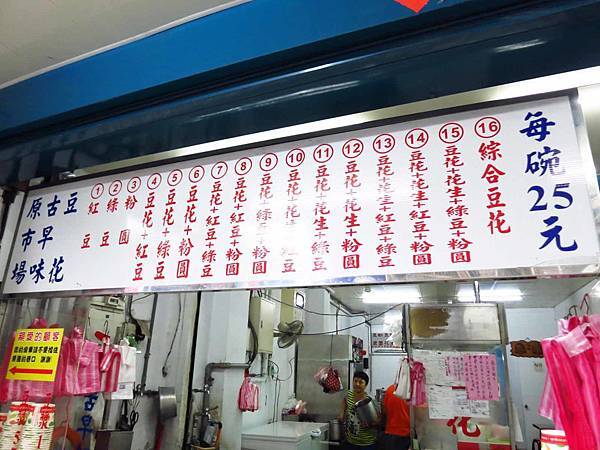 每碗25元
⑯綜合豆花
⑮豆花+花生+綠豆+粉圓
⑭豆花+花生+紅豆+粉圓
⑬豆花+花生+紅豆+綠豆
⑫豆花+花生+粉圓
⑪豆花+花生+綠豆
⑩豆花+花 豆
⑨豆花+綠豆+粉圓
⑧豆花+紅豆+粉圓
⑦豆花+紅豆+綠豆
⑥豆花+粉圓
⑤豆花+綠豆
④豆花+紅豆
③粉圓
②綠豆
①紅豆
豆花
古早味
原市場
親愛的顧客
謝謝
古早
花